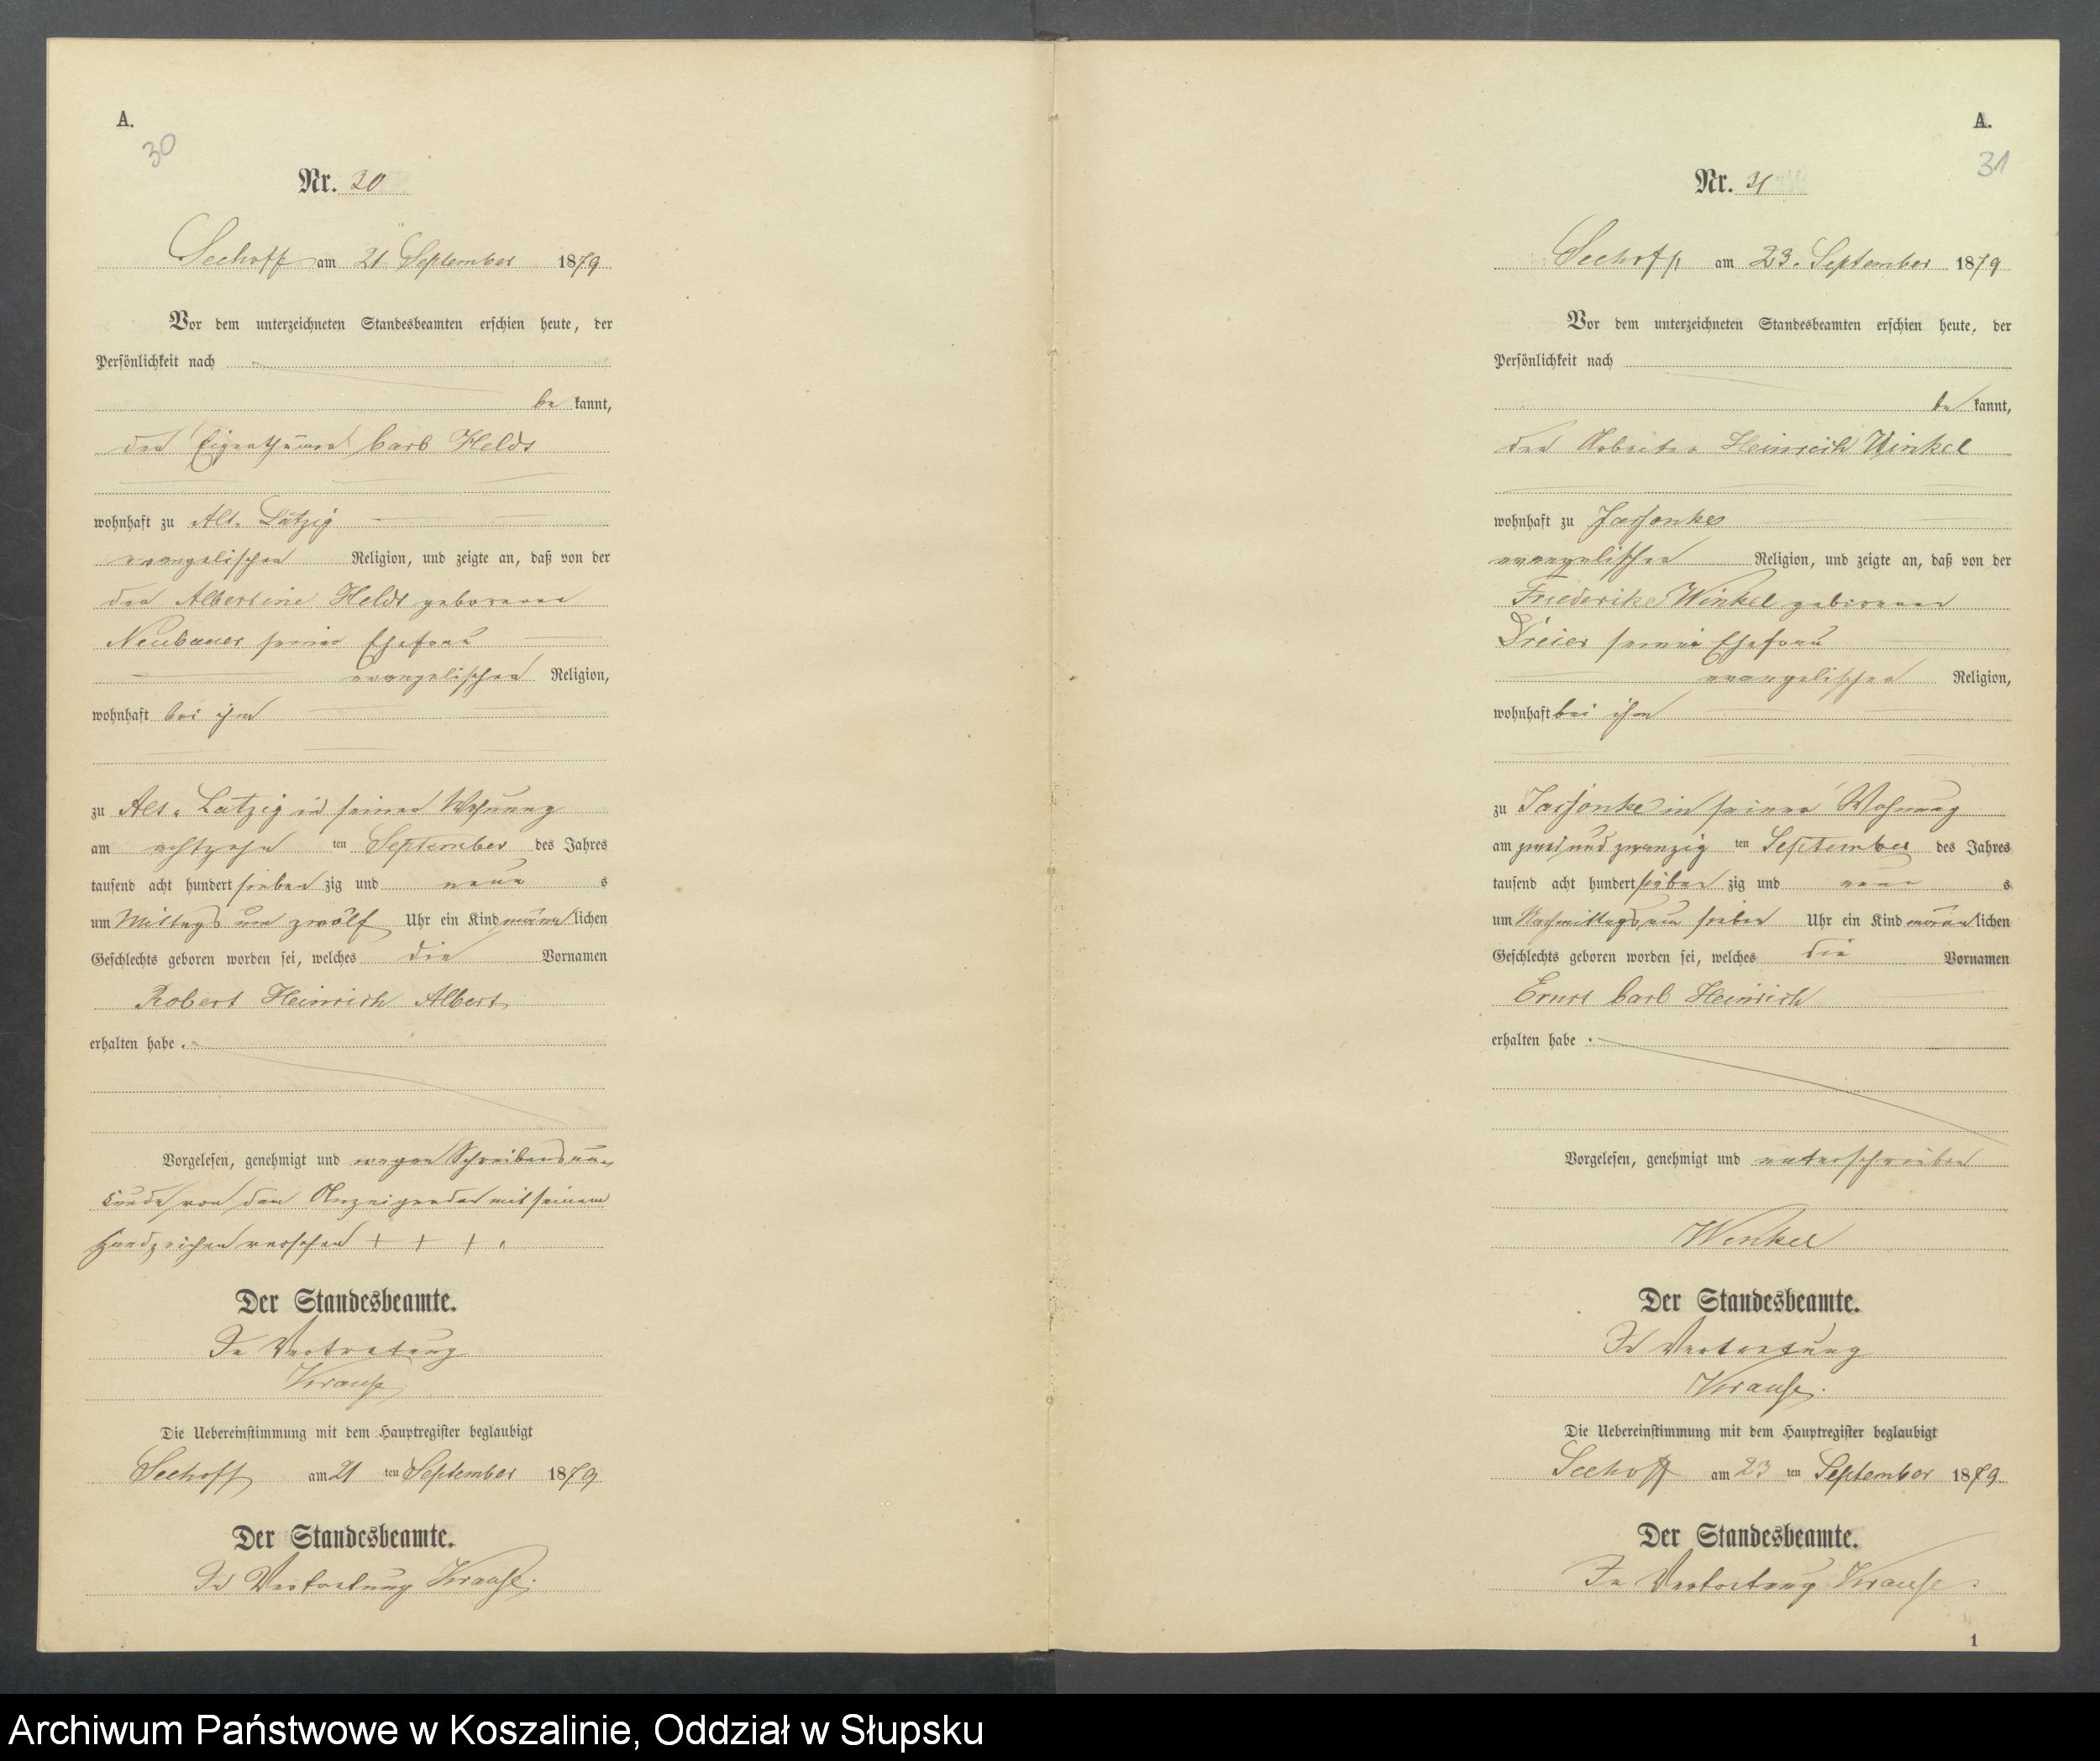 A.
30
Nr. 30
Seehoff am 21 September 1879
Vor dem unterzeichneten Standesbeamten erschien heute, der
Persönlichkeit nach
be kannt,
der Eigenthümer Carl Heldt
wohnhaft zu Alt-Latzig
evangelischer Religion, und zeigte an, daß von der
der Albertine Heldt geborenen
Neubauer seiner Ehefrau
evangelischer Religion,
wohnhaft bei ihm
zu Alt-Latzig in seiner Wohnung
am achtzehn ten September des Jahres
tausend acht hundert sieben zig und neun s
um Mittags um zwölf Uhr ein Kind männ lichen
Geschlechts geboren worden sei, welches die Vornamen
Robert Heinrich Albert
erhalten habe.
Vorgelesen, genehmigt und wegen Schreibens un-
kunde von dem Anzeigenden mit seinem
Handzeichen versehen + + +.
Der Standesbeamte.
In Vertretung
Krause
Die Uebereinstimmung mit dem Hauptregister beglaubigt
Seehoff am 21 ten September 1879
Der Standesbeamte.
In Vertretung Krause.
A.
31
Nr. 31
Seehoff am 23. September 1879
Vor dem unterzeichneten Standesbeamten erschien heute, der
Persönlichkeit nach
be kannt,
der Arbeiter Heinrich Winkel
wohnhaft zu Jassonke
evangelischer Religion, und zeigte an, daß von der
Friederike Winkel geborenen
Dreier seiner Ehefrau
evangelischer Religion,
wohnhaft bei ihm
zu Jassonke in seiner Wohnung
am zwei und zwanzig ten September des Jahres
tausend acht hundert sieben zig und neun s
um Nachmittags um sieben Uhr ein Kind männ lichen
Geschlechts geboren worden sei, welches die Vornamen
Ernst Carl Heinrich
erhalten habe.
Vorgelesen, genehmigt und unterschrieben
Winkel
Der Standesbeamte.
In Vertretung
Krause.
Die Uebereinstimmung mit dem Hauptregister beglaubigt
Seehoff am 23 ten September 1879
Der Standesbeamte.
In Vertretung Krause.
1
Archiwum Państwowe w Koszalinie, Oddział w Słupsku